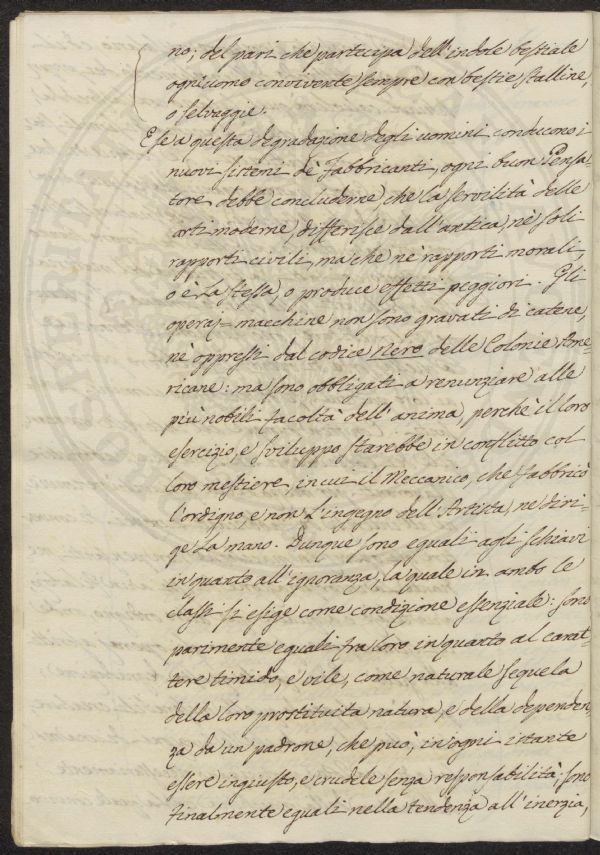 no; del pari che partecipa dell'indole bestiale
ogniuomo convivente sempre con bestie stalline,
o selvaggie.
E se a questa degradazione degli uomini conducono i
nuovi sistemi de' Fabbricanti, ogni buon Pensa
tore debbe concluderne, che la servilità delle
arti moderne, differisce dall'antica, ne' soli
rapporti civili, ma che ne' rapporti morali,
o è la stessa, o produce effetti peggiori. Gli
operaj=macchine non sono gravati di catene,
nè oppressi dal codice Nero delle Colonie Ame-
ricane: ma sono obbligati a renunziare alle
più nobili facoltà dell'anima, perchè il loro
esercizio, e sviluppo starebbe in conflitto col
loro mestiere, in cui il Meccanico, che fabbricò
l'ordigno, e non l'ingegno dell'Artista, ne diri-
ge la mano. Dunque sono eguali agli schiavi
in quanto all'ignoranza, la quale in ambo le
classi si esige come condizione essenziale: sono
parimente eguali fra loro in quanto al carat-
tere timido, e vile, come naturale sequela
della loro prostituita natura, e della dependen-
za da un padrone, che può, in ogni istante
essere ingiusto, e crudele senza responsabilità; sono
finalmente eguali nella tendenza all'inerzia,